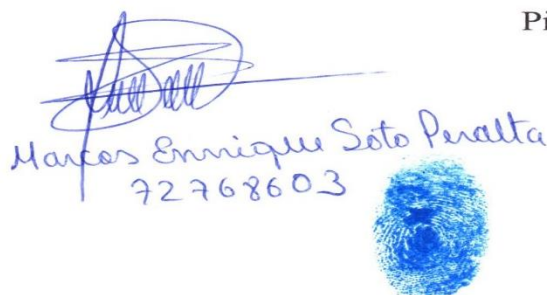 Pi
Marcos Enrique Soto Peralta
72768603